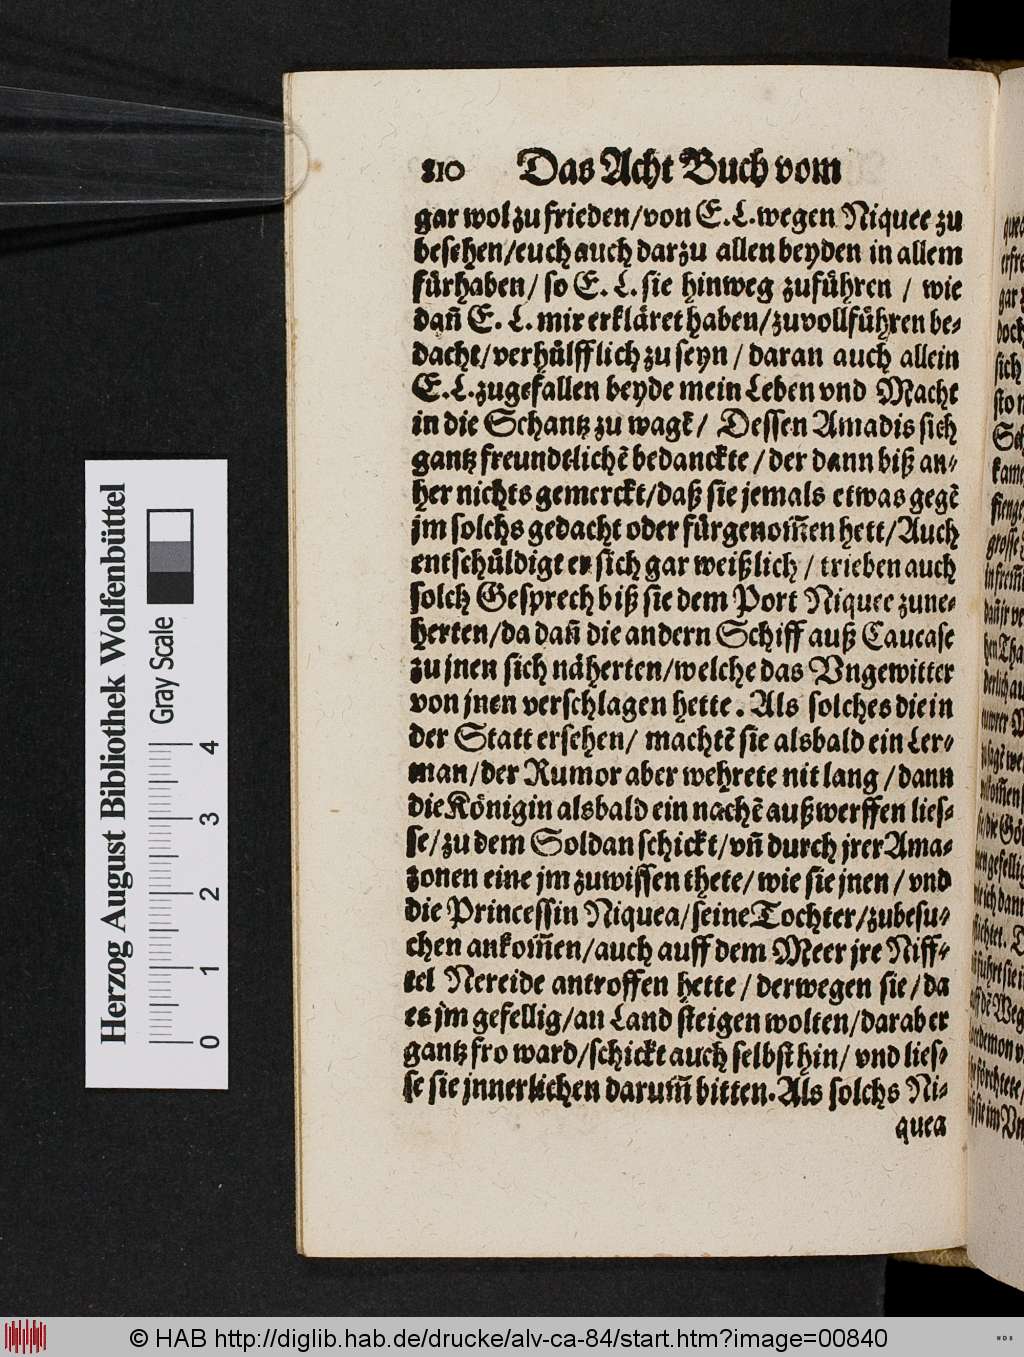 810 Das Acht Buch vom
gar wol zu frieden/von E. L. wegen Niquee zu
besehen/euch auch darzu allen beyden in allem
fürhaben/ so E. L. sie hinweg zuführen / wie
dañ E. L. mir erkläret haben/zuvollführen be-
dacht/verhülfflich zu seyn / daran auch allein
E. L. zugefallen beyde mein Leben vnd Macht
in die Schantz zu wagē/ Dessen Amadis sich
gantz freundtlichē bedanckte / der dann biß an-
her nichts gemerckt/daß sie jemals etwas gegē
jm solchs gedacht oder fürgenom̃en hett/Auch
entschüldigt er sich gar weißlich / trieben auch
solch Gesprech biß sie dem Port Niquee zune-
herten/da dañ die andern Schiff auß Caucase
zu jnen sich näherten/welche das Vngewitter
von jnen verschlagen hette. Als solches die in
der Statt ersehen/ machtē sie alsbald ein Ler-
man/der Rumor aber wehrete nit lang /dann
die Königin alsbald ein nachē außwerffen lies-
se/zu dem Soldan schickt/vñ durch jrer Ama-
zonen eine jm zuwissen thete/wie sie jnen / vnd
die Princessin Niquea/seine Tochter/zubesu-
chen ankom̃en/auch auff dem Meer jre Niff-
tel Nereide antroffen hette / derwegen sie/da
es jm gefellig/an Land steigen wolten/darab er
gantz fro ward/schickt auch selbst hin/ vnd lies-
se sie jnnerlichen darum̃ bitten. Als solchs Ni-
quea
Herzog August Bibliothek Wolfenbüttel
Gray Scale
0 1 2 3 4
© HAB http://diglib.hab.de/drucke/alv-ca-84/start.htm?image=00840